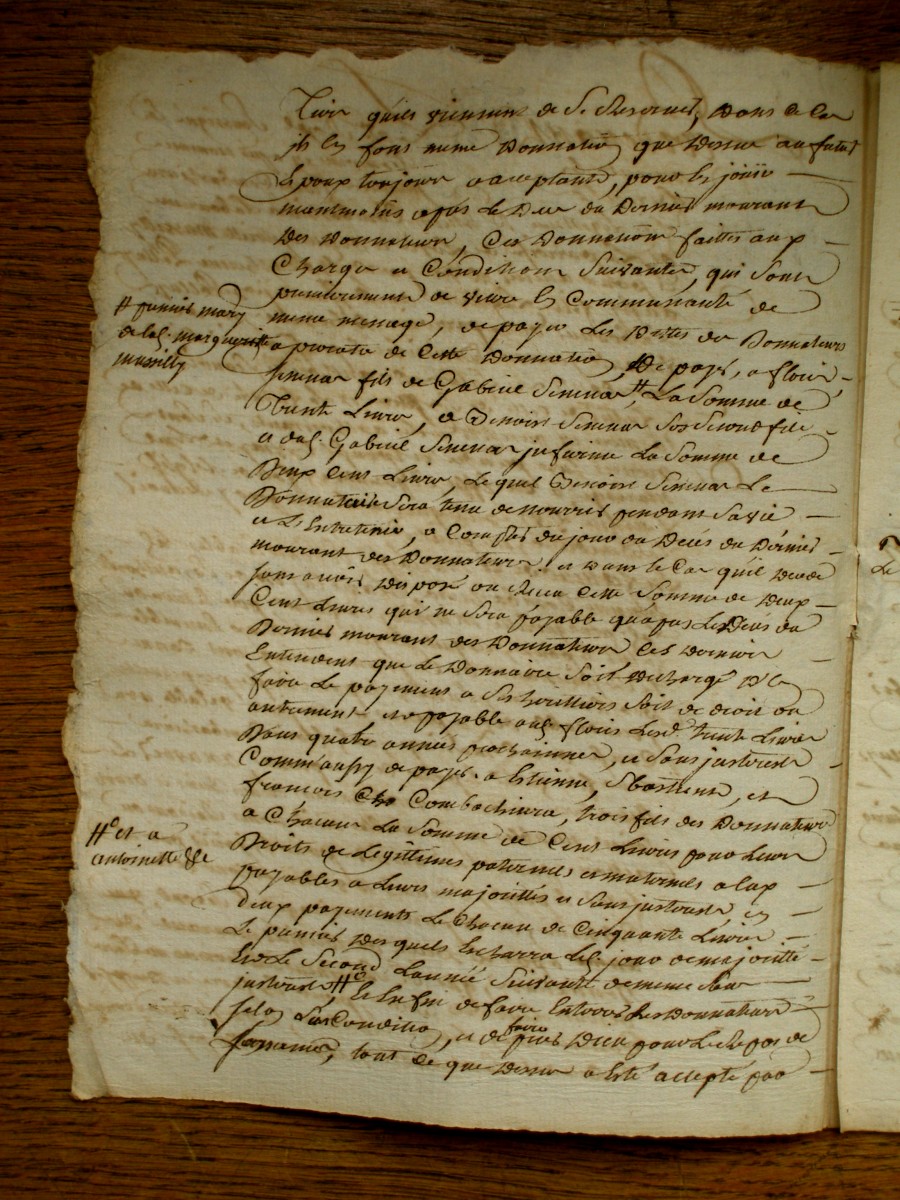 quils viennent de se Reserver, Dans ce Cas
ils en font meme Donnation que Dessus au futur
Epoux toujours acceptant, pour en jouir
neantmoins apres le Deces du Dernier mourant
Des Donnateurs, Ces Donnations faittes aux
Charges et Conditions Suivantes, qui sont
premierement de vivre en Communauté de
meme menage, de payer Les Dettes des Donnateurs
a prorata de Cette Donnation, De payer, a
fils de Gabriel # La Somme de
Trente Livres, a Benoist Son Second fils
et de Gabriel La Somme de
Deux Cent Livres, Lequel Benoist Le
Donnataire Sera tenu de nourrir pendant Sa vie
et L'Entretenir, a Compter du jour du Deces du Dernier
mourant des Donnateurs, et Dans le Cas qu'il Decede
sans avoir Disposé ou Receu Cette Somme de Deux
Cent Livres qui ne Sera payable qu'apres le Deces du
Dernier mourant des Donnateurs Ces Derniers
Entendent que Le Donnataire Soit Dechargé D'en
faire Le payement a Ses heritiers Soit de droit ou
autrement et payable trente Livres
Dans quatre années prochaines, et Sans jnterest
Comm'aussy de payer a Estienne, et
françois Combachiura, trois fils des Donnateurs
a Chacun La Somme de Cent Livres pour Leurs
Droits de Legitimes paternels et maternels a eux
payables a Leurs majorittés et Sans jnterest, en
deux payements de Chacun de Cinquante Livres
Le premier Desquels Echerra Le jour de majoritté
Et Le Second Lannée Suivante de meme Sans
jnterest # Et Enfin de faire Enterrer Les Donnateurs
selon Leur Condition, et de faire prier Dieu pour Le Repos de
Leurs ames, tout Ce que Dessus a Eté accepté par
# françois mary
de marguerite
#c et a
antoinette